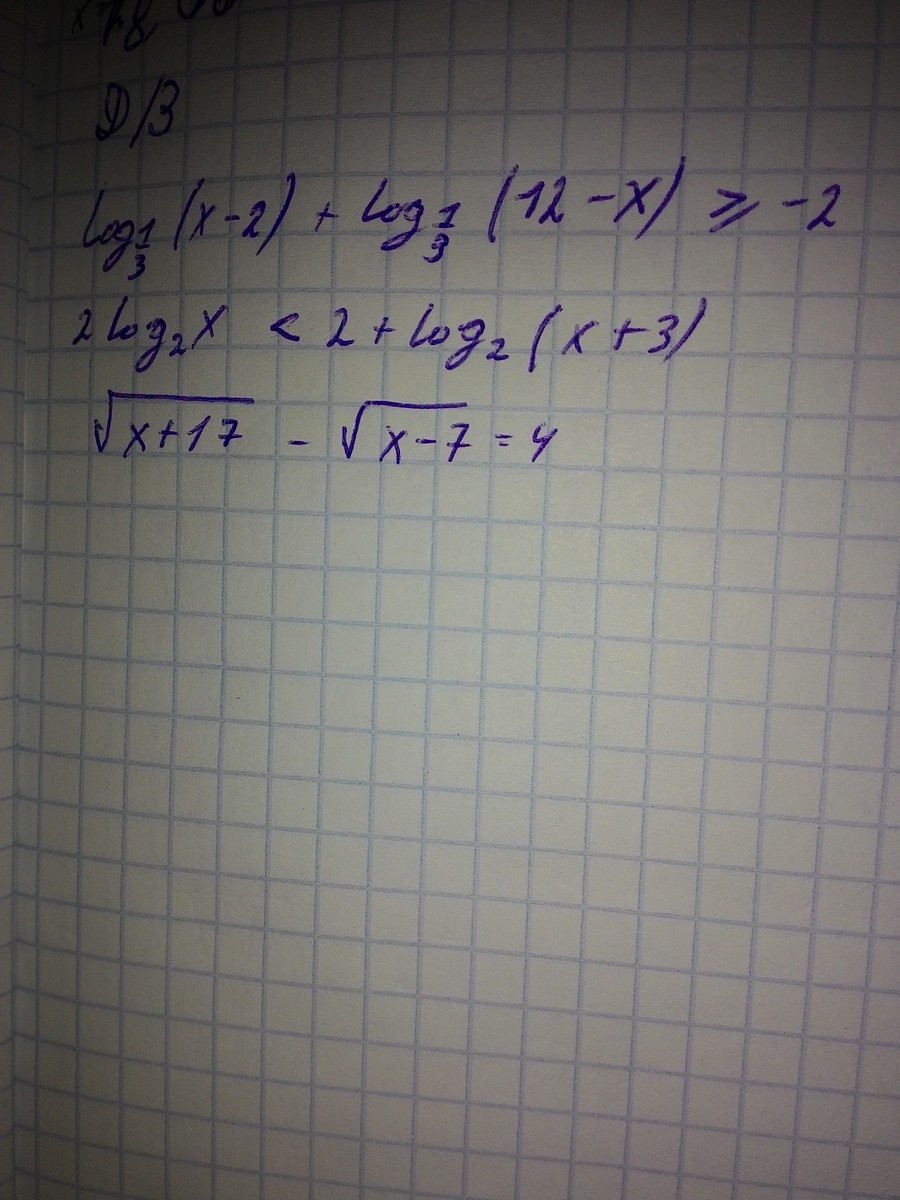 Д/З
log_{1/3} (x-2) + log_{1/3} (12-x) ⩾ -2
2 log_2 x < 2 + log_2 (x+3)
√(x+17) - √(x-7) = 4